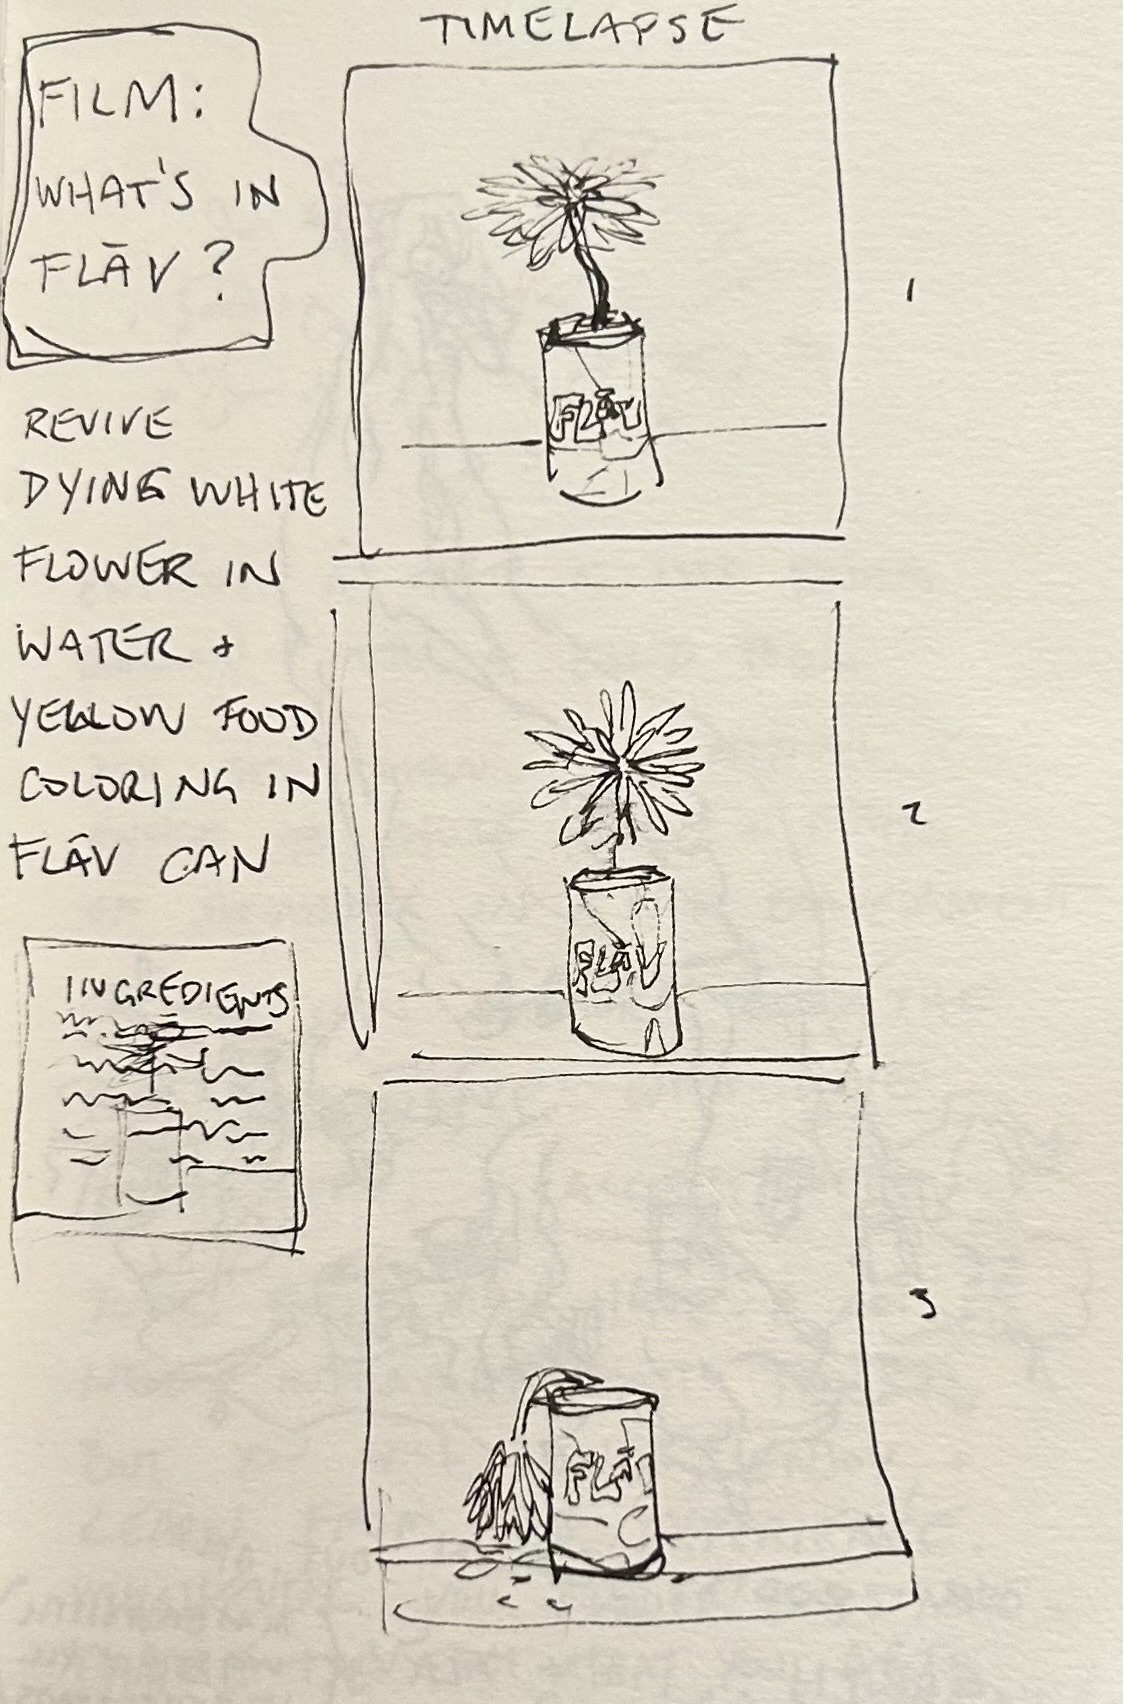 TIMELAPSE
FILM:
WHAT'S IN
FLĀV ?
REVIVE
DYING WHITE
FLOWER IN
WATER +
YELLOW FOOD
COLORING IN
FLĀV CAN
INGREDIENTS
FLĀV
1
FLĀV
2
FLĀV
3